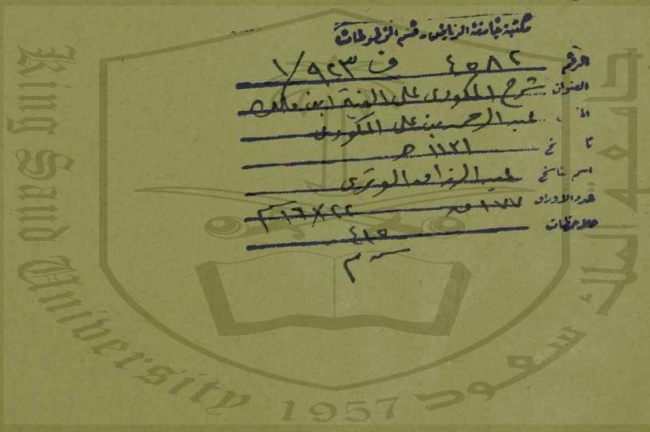 مكتبة جامعة الرياض - قسم المخطوطات
الرقم ٤٥٨٢ ف ٩٢٣/١
العنوان شرح المكودي على الفية ابن مالك
عبد الرحمن بن علي المكودي
١١٣١ هـ
اسم الناسخ عبد الرزاق الوتري
عدد الاوراق ١٧٧ ق ٢٢×١٦
ملاحظات ٤١٥
م
King Saud University
1957
جامعة الملك سعود